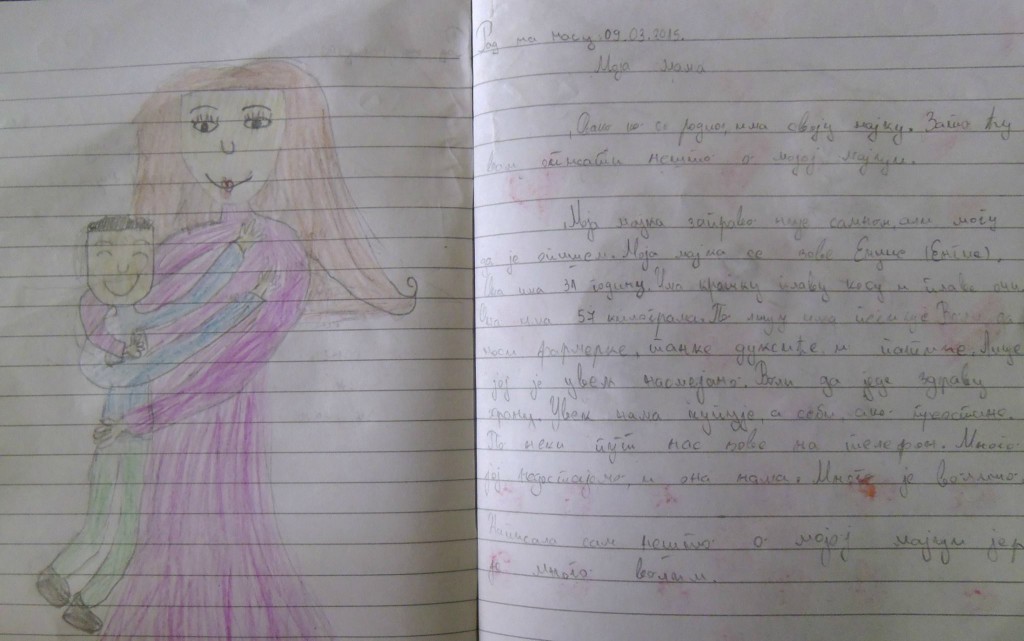 Рад на часу 09.03.2015.
Моја мама
Свако ко се родио, има своју мајку. Зато ћу
вам описати нешто о мојој мајци.
Мој мајка заправо није самном, али могу
да је опишем. Моја мајка се зове
Она има 31 годину. Има краћу плаву косу и плаве очи.
Она има 57 килограма. По лицу има пегице. Воли да
носи фармерке, танке дуксиће и патике. Лице
јој је увек насмејано. Воли да једе здраву
храну. Увек нама купује, а себи ако претекне.
По неки пут нас зове на телефон. Много
јој недостајемо, и она нама. Много је волимо.
Написала сам нешто о мојој мајци јер
је много волим.